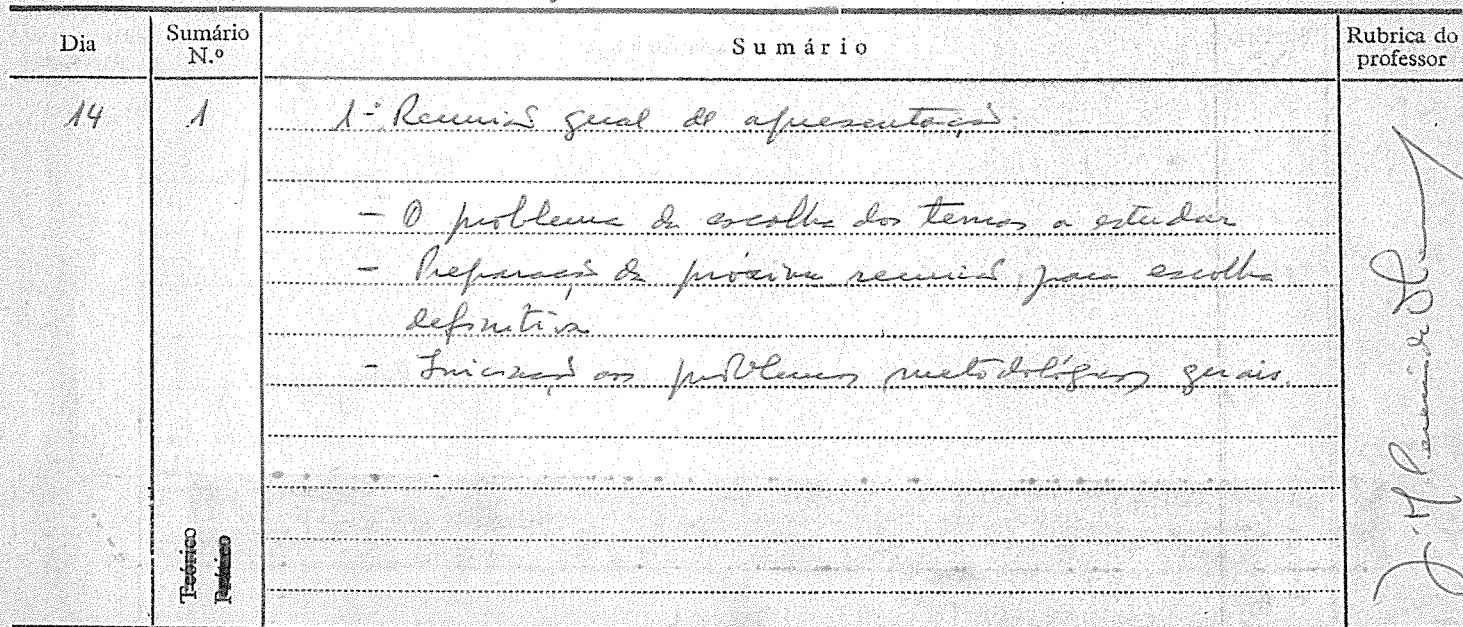 Dia
Sumário N.º
Sumário
Rubrica do professor
14
1
1ª Reunião geral de apresentação.
- O problema da escolha dos temas a estudar
- Preparação da próxima reunião, para escolha
definitiva
- Iniciação aos problemas metodológicos gerais.
Teórico
J. M.